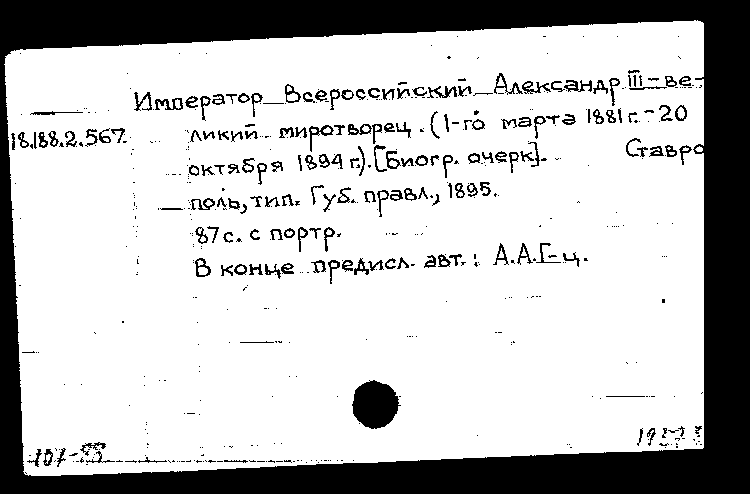 Император Всероссийский Александр III-ве-
18.188.2.567. ликий миротворец. (1-го марта 1881 г.-20
октября 1894 г.). [Биогр. очерк]. Ставро
поль, тип. Губ. правл., 1895.
87 с. с портр.
В конце предисл. авт.: А.А.Г-ц.